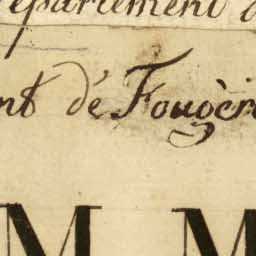 épartement d
nt dé Fougèr
M M